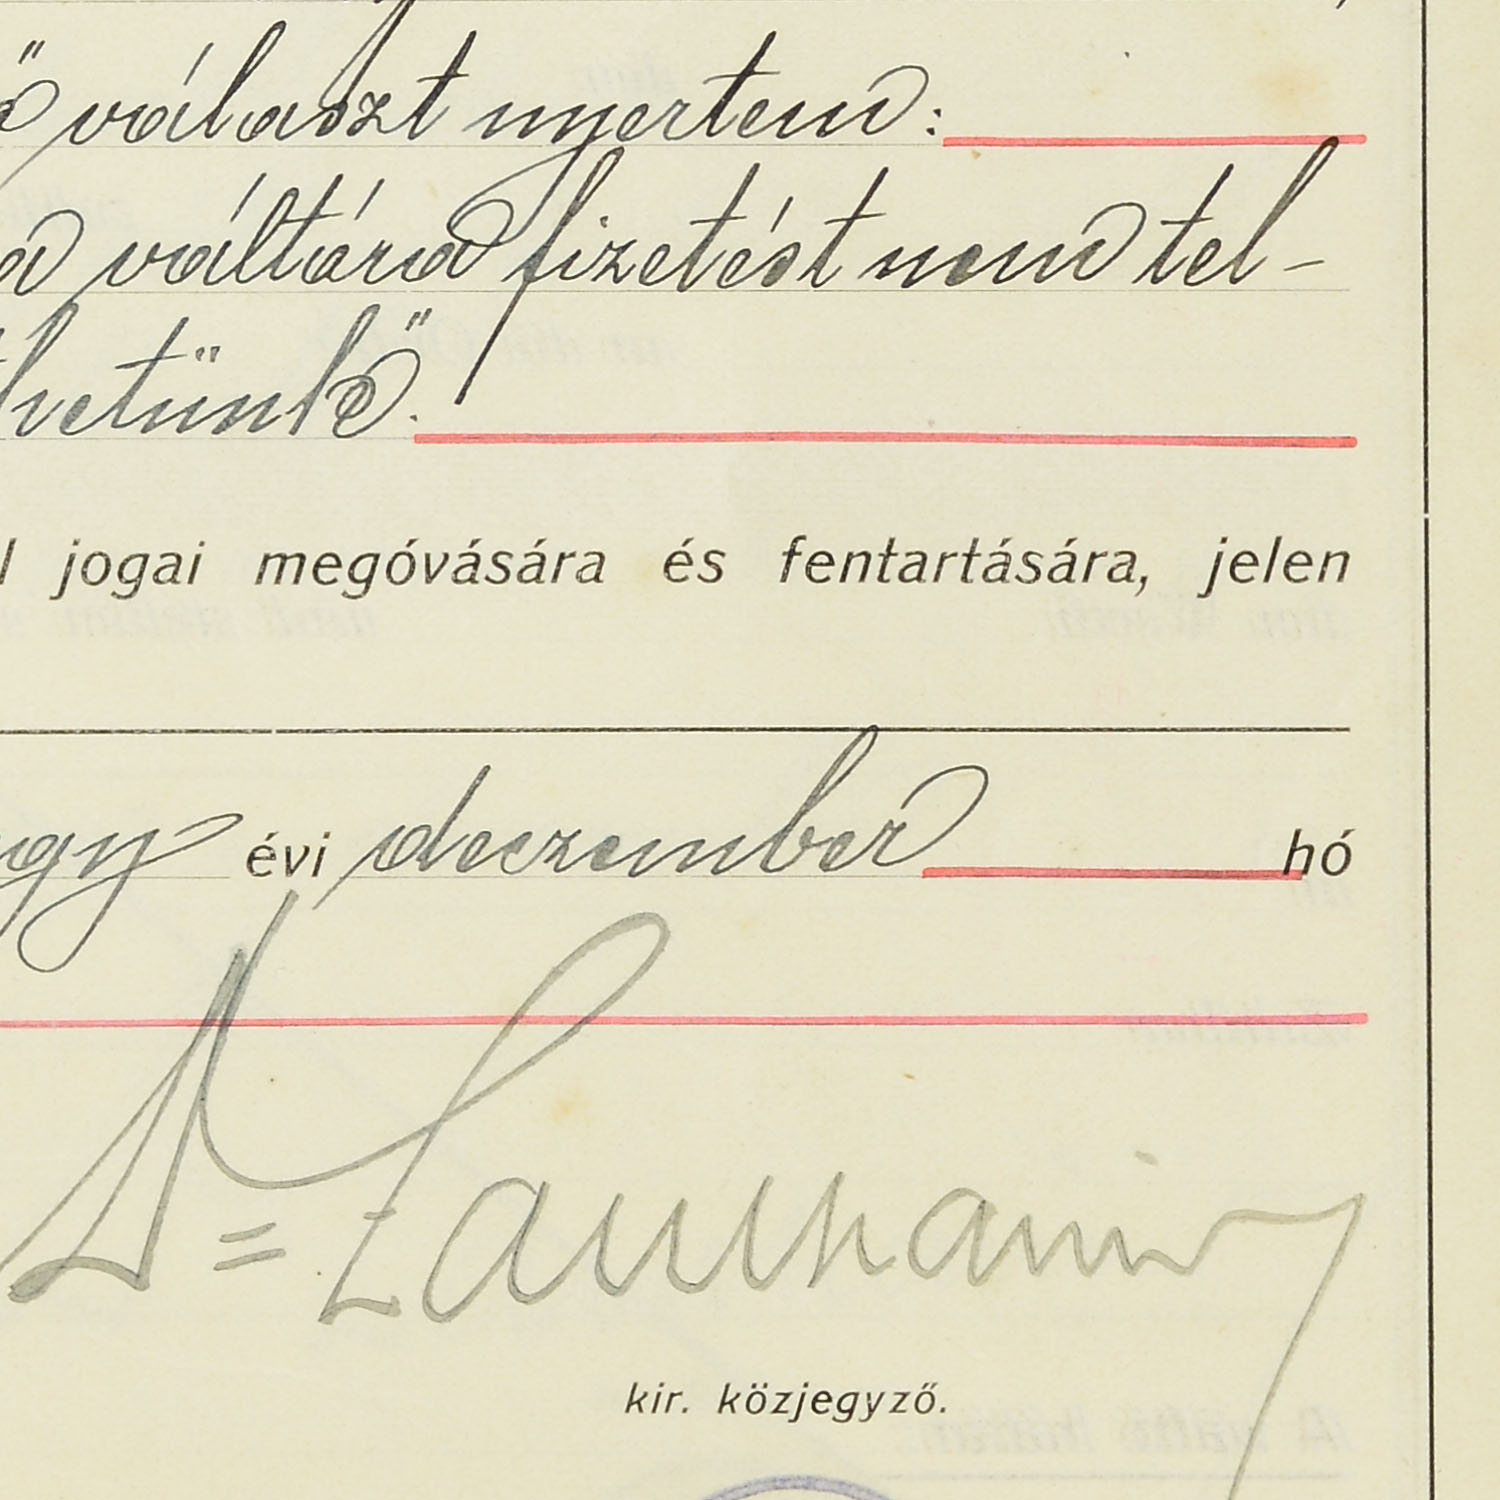 választ nyertem:
a váltóra fizetést nem tel-
hetünk".
jogai megóvására és fentartására, jelen
egy évi deczember hó
kir. közjegyző.